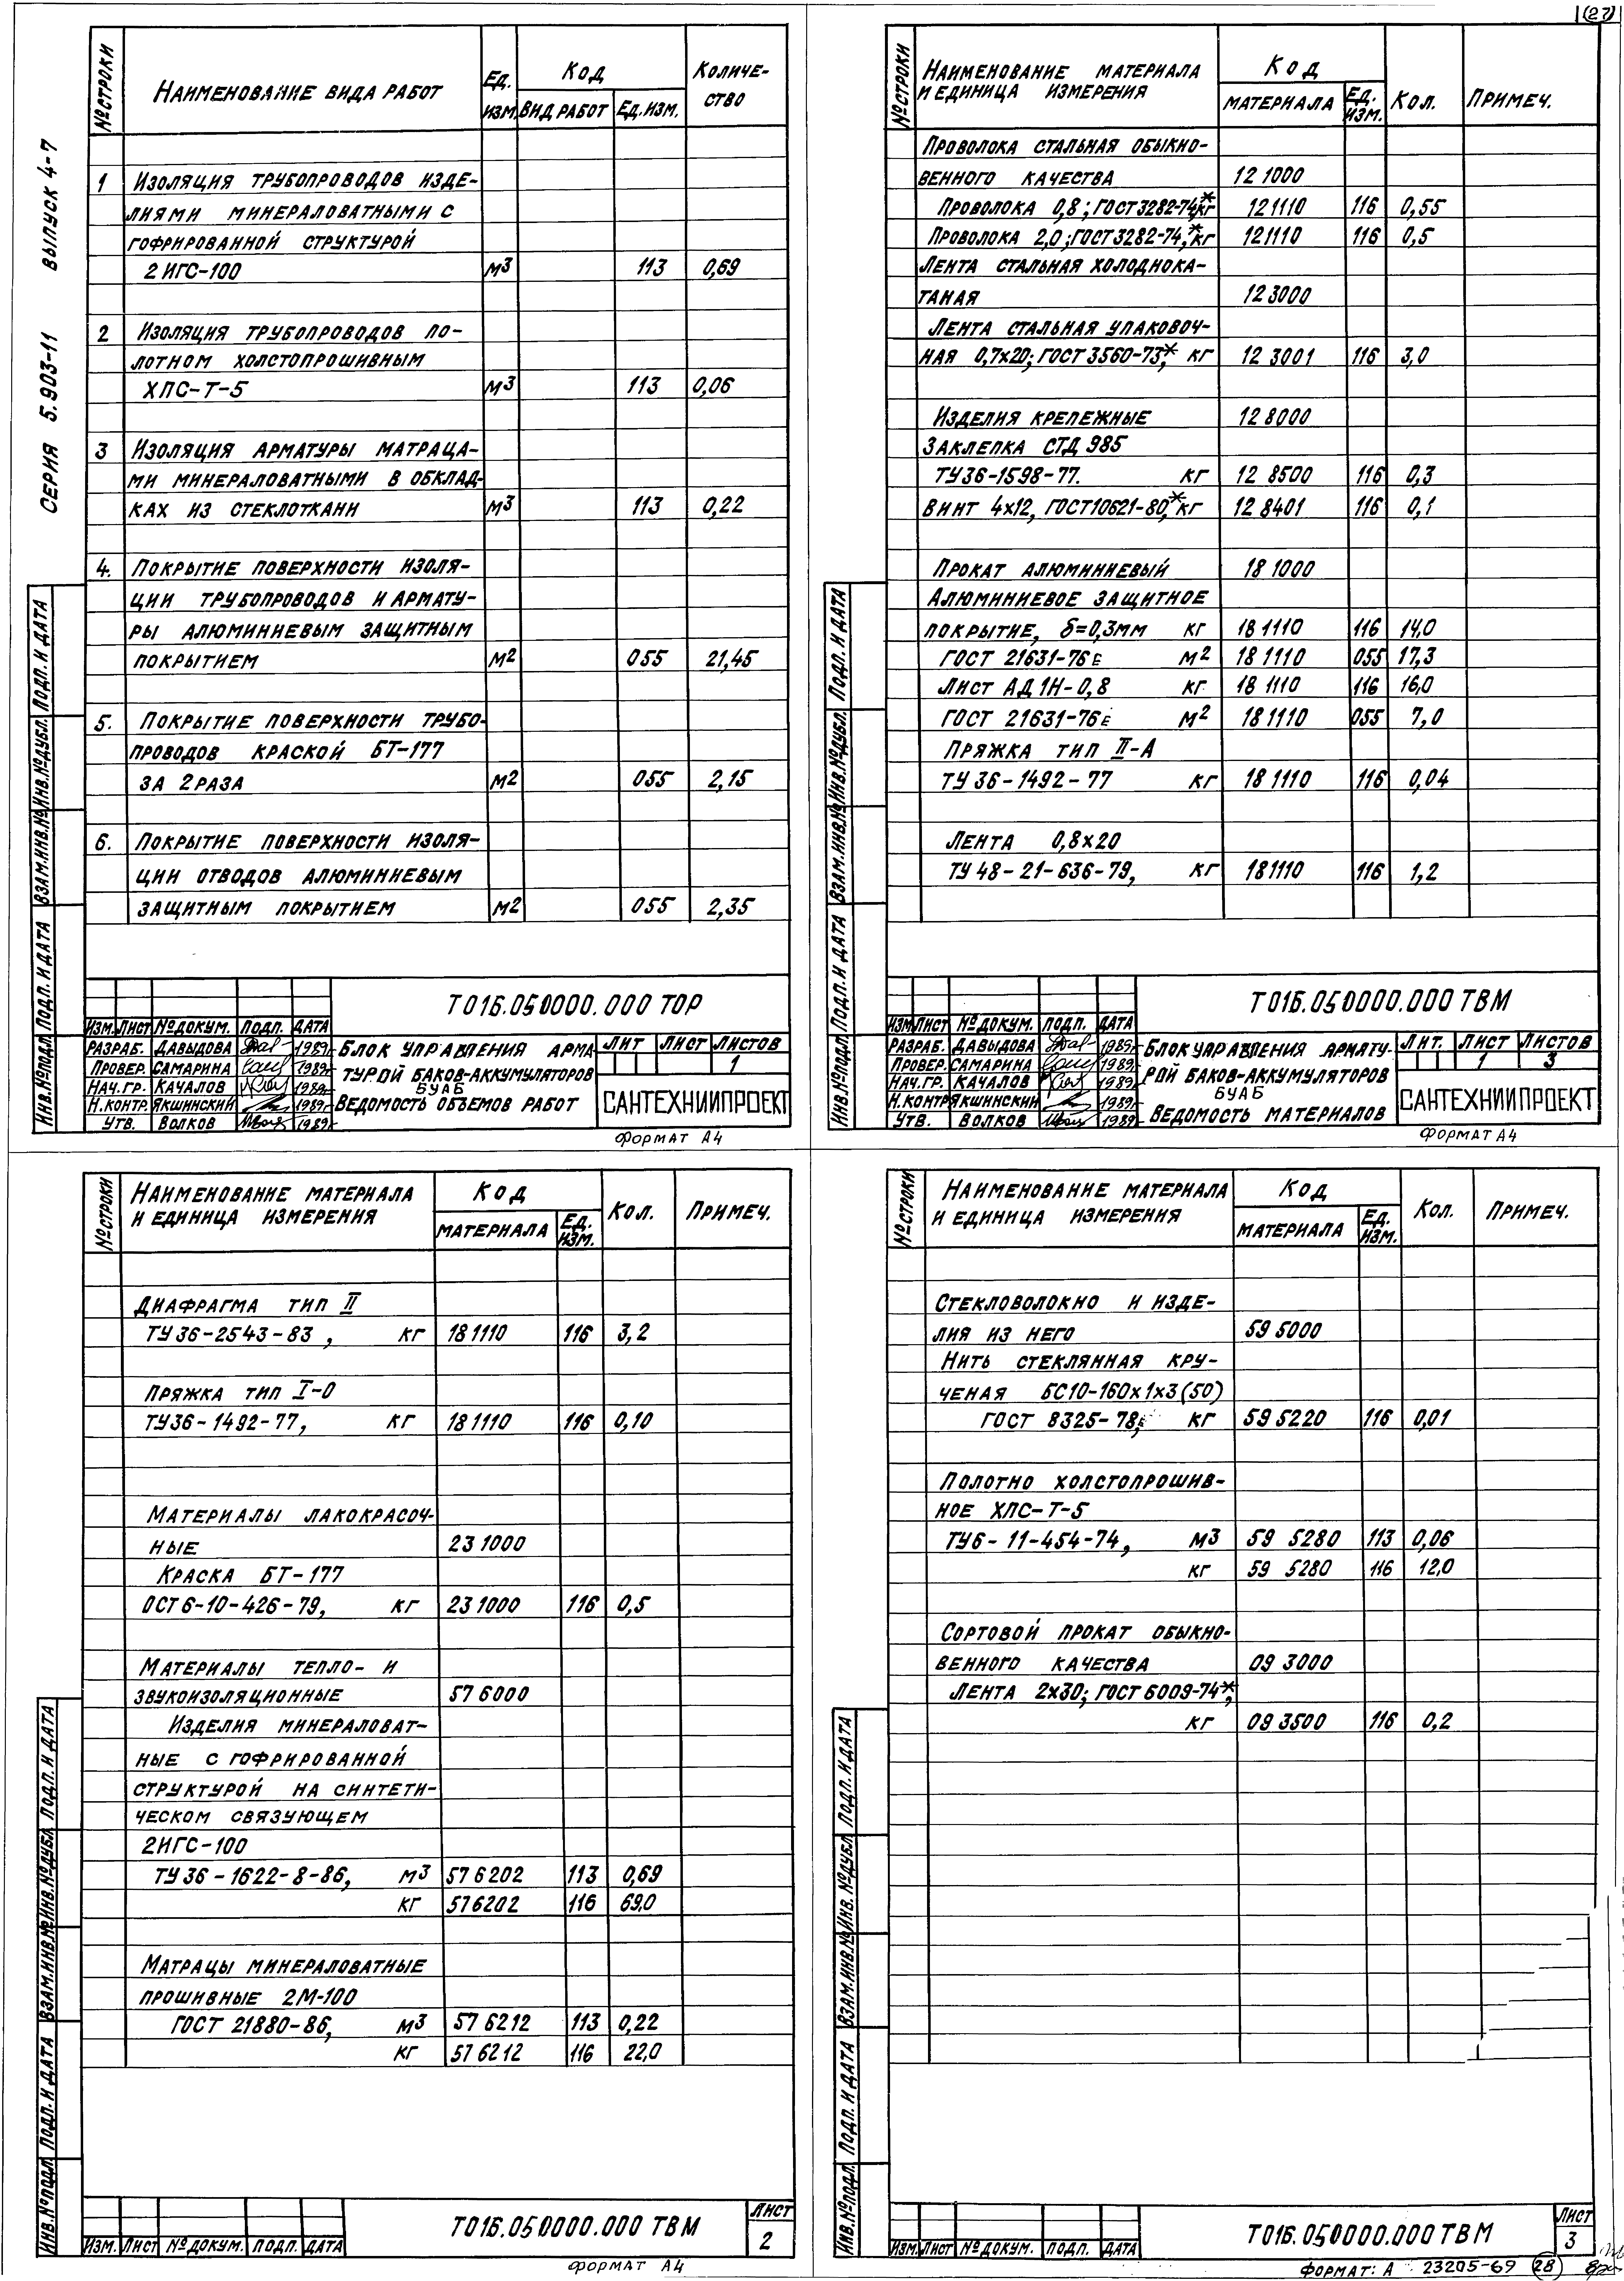 27
СЕРИЯ 5.903-11 ВЫПУСК 4-7
№ СТРОКИ
НАИМЕНОВАНИЕ ВИДА РАБОТ
ЕД. ИЗМ.
КОД
ВИД РАБОТ ЕД. ИЗМ.
КОЛИЧЕ-
СТВО
1 ИЗОЛЯЦИЯ ТРУБОПРОВОДОВ ИЗДЕ-
ЛИЯМИ МИНЕРАЛОВАТНЫМИ С
ГОФРИРОВАННОЙ СТРУКТУРОЙ
2 ИГС-100 М3 113 0,69
2 ИЗОЛЯЦИЯ ТРУБОПРОВОДОВ ПО-
ЛОТНОМ ХОЛСТОПРОШИВНЫМ
ХПС-Т-5 М3 113 0,06
3 ИЗОЛЯЦИЯ АРМАТУРЫ МАТРАЦА-
МИ МИНЕРАЛОВАТНЫМИ В ОБКЛАД-
КАХ ИЗ СТЕКЛОТКАНИ М3 113 0,22
4. ПОКРЫТИЕ ПОВЕРХНОСТИ ИЗОЛЯ-
ЦИИ ТРУБОПРОВОДОВ И АРМАТУ-
РЫ АЛЮМИНИЕВЫМ ЗАЩИТНЫМ
ПОКРЫТИЕМ М2 055 21,45
5. ПОКРЫТИЕ ПОВЕРХНОСТИ ТРУБО-
ПРОВОДОВ КРАСКОЙ БТ-177
ЗА 2 РАЗА М2 055 2,15
6. ПОКРЫТИЕ ПОВЕРХНОСТИ ИЗОЛЯ-
ЦИИ ОТВОДОВ АЛЮМИНИЕВЫМ
ЗАЩИТНЫМ ПОКРЫТИЕМ М2 055 2,35
ИНВ.№ПОДЛ. ПОДП. И ДАТА ВЗАМ.ИНВ.№ ИНВ.№ДУБЛ. ПОДП. И ДАТА
Т01Б.050000.000 ТОР
ИЗМ. ЛИСТ №ДОКУМ. ПОДП. ДАТА
РАЗРАБ. ДАВЫДОВА 1989
ПРОВЕР. САМАРИНА 1989
НАЧ.ГР. КАЧАЛОВ 1989
Н.КОНТР. ЯКШИНСКИЙ 1989
УТВ. ВОЛКОВ 1989
БЛОК УПРАВЛЕНИЯ АРМА-
ТУРОЙ БАКОВ-АККУМУЛЯТОРОВ
БУАБ
ВЕДОМОСТЬ ОБЪЕМОВ РАБОТ
ЛИТ ЛИСТ ЛИСТОВ
1
САНТЕХНИИПРОЕКТ
ФОРМАТ А4
№ СТРОКИ
НАИМЕНОВАНИЕ МАТЕРИАЛА
И ЕДИНИЦА ИЗМЕРЕНИЯ
КОД
МАТЕРИАЛА ЕД. ИЗМ.
КОЛ. ПРИМЕЧ.
ПРОВОЛОКА СТАЛЬНАЯ ОБЫКНО-
ВЕННОГО КАЧЕСТВА 12 1000
ПРОВОЛОКА 0,8; ГОСТ 3282-74,* КГ 12 1110 116 0,55
ПРОВОЛОКА 2,0; ГОСТ 3282-74,* КГ 12 1110 116 0,5
ЛЕНТА СТАЛЬНАЯ ХОЛОДНОКА-
ТАНАЯ 12 3000
ЛЕНТА СТАЛЬНАЯ УПАКОВОЧ-
НАЯ 0,7×20; ГОСТ 3560-73,* КГ 12 3001 116 3,0
ИЗДЕЛИЯ КРЕПЕЖНЫЕ 12 8000
ЗАКЛЕПКА СТД 985
ТУ 36-1598-77. КГ 12 8500 116 0,3
ВИНТ 4×12, ГОСТ 10621-80,* КГ 12 8401 116 0,1
ПРОКАТ АЛЮМИНИЕВЫЙ 18 1000
АЛЮМИНИЕВОЕ ЗАЩИТНОЕ
ПОКРЫТИЕ, δ=0,3ММ КГ 18 1110 116 14,0
ГОСТ 21631-76Е М2 18 1110 055 17,3
ЛИСТ АД 1Н-0,8 КГ 18 1110 116 16,0
ГОСТ 21631-76Е М2 18 1110 055 7,0
ПРЯЖКА ТИП II-А
ТУ 36-1492-77 КГ 18 1110 116 0,04
ЛЕНТА 0,8×20
ТУ 48-21-636-79, КГ 18 1110 116 1,2
ИНВ.№ПОДЛ. ПОДП. И ДАТА ВЗАМ.ИНВ.№ ИНВ.№ДУБЛ. ПОДП. И ДАТА
Т01Б.050000.000 ТВМ
ИЗМ. ЛИСТ №ДОКУМ. ПОДП. ДАТА
РАЗРАБ. ДАВЫДОВА 1989
ПРОВЕР. САМАРИНА 1989
НАЧ.ГР. КАЧАЛОВ 1989
Н.КОНТР ЯКШИНСКИЙ 1989
УТВ. ВОЛКОВ 1989
БЛОК УПРАВЛЕНИЯ АРМАТУ-
РОЙ БАКОВ-АККУМУЛЯТОРОВ
БУАБ
ВЕДОМОСТЬ МАТЕРИАЛОВ
ЛИТ. ЛИСТ ЛИСТОВ
1 3
САНТЕХНИИПРОЕКТ
ФОРМАТ А4
№ СТРОКИ
НАИМЕНОВАНИЕ МАТЕРИАЛА
И ЕДИНИЦА ИЗМЕРЕНИЯ
КОД
МАТЕРИАЛА ЕД. ИЗМ.
КОЛ. ПРИМЕЧ.
ДИАФРАГМА ТИП II
ТУ 36-2543-83, КГ 18 1110 116 3,2
ПРЯЖКА ТИП I-О
ТУ 36-1492-77, КГ 18 1110 116 0,10
МАТЕРИАЛЫ ЛАКОКРАСОЧ-
НЫЕ 23 1000
КРАСКА БТ-177
ОСТ 6-10-426-79, КГ 23 1000 116 0,5
МАТЕРИАЛЫ ТЕПЛО- И
ЗВУКОИЗОЛЯЦИОННЫЕ 57 6000
ИЗДЕЛИЯ МИНЕРАЛОВАТ-
НЫЕ С ГОФРИРОВАННОЙ
СТРУКТУРОЙ НА СИНТЕТИ-
ЧЕСКОМ СВЯЗУЮЩЕМ
2ИГС-100
ТУ 36-1622-8-86, М3 57 6202 113 0,69
КГ 57 6202 116 69,0
МАТРАЦЫ МИНЕРАЛОВАТНЫЕ
ПРОШИВНЫЕ 2М-100
ГОСТ 21880-86, М3 57 6212 113 0,22
КГ 57 6212 116 22,0
ИНВ.№ПОДЛ. ПОДП. И ДАТА ВЗАМ.ИНВ.№ ИНВ.№ДУБЛ. ПОДП. И ДАТА
ИЗМ. ЛИСТ №ДОКУМ. ПОДП. ДАТА
Т01Б.050000.000 ТВМ
ЛИСТ
2
ФОРМАТ А4
№ СТРОКИ
НАИМЕНОВАНИЕ МАТЕРИАЛА
И ЕДИНИЦА ИЗМЕРЕНИЯ
КОД
МАТЕРИАЛА ЕД. ИЗМ.
КОЛ. ПРИМЕЧ.
СТЕКЛОВОЛОКНО И ИЗДЕ-
ЛИЯ ИЗ НЕГО 59 5000
НИТЬ СТЕКЛЯННАЯ КРУ-
ЧЕНАЯ БС10-160×1×3(50)
ГОСТ 8325-78Е, КГ 59 5220 116 0,01
ПОЛОТНО ХОЛСТОПРОШИВ-
НОЕ ХПС-Т-5
ТУ6-11-454-74, М3 59 5280 113 0,06
КГ 59 5280 116 12,0
СОРТОВОЙ ПРОКАТ ОБЫКНО-
ВЕННОГО КАЧЕСТВА 09 3000
ЛЕНТА 2×30; ГОСТ 6009-74*,
КГ 09 3500 116 0,2
ИНВ.№ПОДЛ. ПОДП. И ДАТА ВЗАМ.ИНВ.№ ИНВ.№ДУБЛ. ПОДП. И ДАТА
ИЗМ. ЛИСТ №ДОКУМ. ПОДП. ДАТА
Т01Б.050000.000 ТВМ
ЛИСТ
3
ФОРМАТ: А 23205-69 28